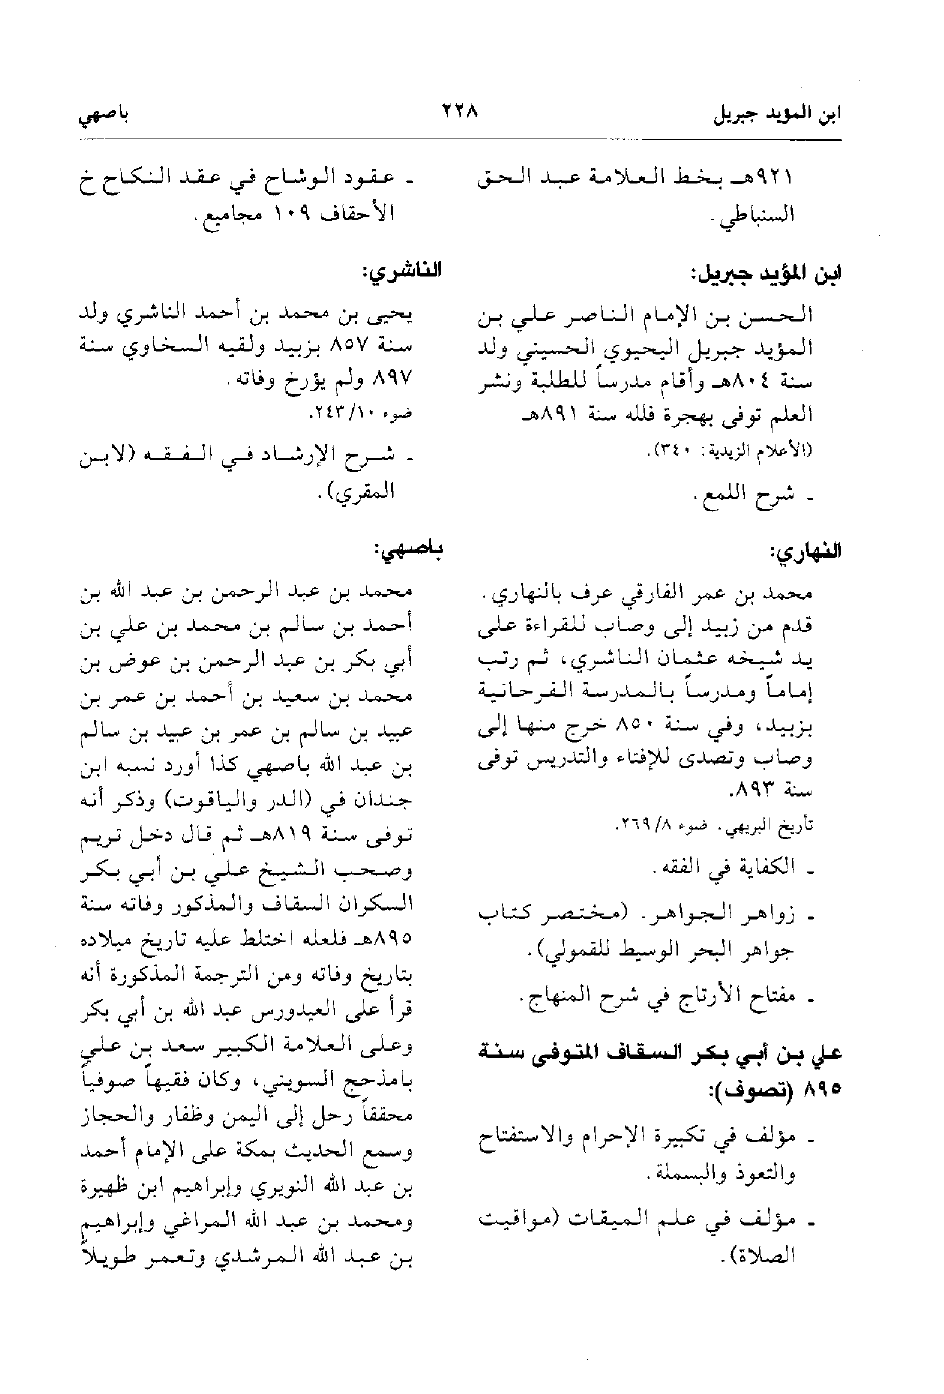 ابن المؤيد جبريل
٢٢٨
باصهي
٩٢١هـ بخط العلامة عبد الحق
السنباطي.
ابن المؤيد جبريل:
الحسن بن الإمام الناصر علي بن
المؤيد جبريل اليحيوي الحسيني ولد
سنة ٨٠٤هـ وأقام مدرساً للطلبة ونشر
العلم توفى بهجرة فلله سنة ٨٩١هـ
(الأعلام الزيدية: ٣٤٠).
- شرح اللمع.
النهاري:
محمد بن عمر الفارقي عرف بالنهاري.
قدم من زبيد إلى وصاب للقراءة على
يد شيخه عثمان الناشري، ثم رتب
إماماً ومدرساً بالمدرسة الفرحانية
بزبيد، وفي سنة ٨٥٠ خرج منها إلى
وصاب وتصدى للإفتاء والتدريس توفى
سنة ٨٩٣.
تأريخ البريهي. ضوء ٢٦٩/٨.
- الكفاية في الفقه.
- زواهر الجواهر. (مختصر كتاب
جواهر البحر الوسيط للقمولي).
- مفتاح الأرتاج في شرح المنهاج.
علي بن أبي بكر السقاف المتوفى سنة
٨٩٥ (تصوف):
- مؤلف في تكبيرة الإحرام والاستفتاح
والتعوذ والبسملة.
- مؤلف في علم الميقات (مواقيت
الصلاة).
- عقود الوشاح في عقد النكاح خ
الأحقاف ١٠٩ مجاميع.
الناشري:
يحيى بن محمد بن أحمد الناشري ولد
سنة ٨٥٧ بزبيد ولقيه السخاوي سنة
٨٩٧ ولم يؤرخ وفاته.
ضوء ٢٤٣/١٠.
- شرح الإرشاد في الفقه (لابن
المقري).
باصهي:
محمد بن عبد الرحمن بن عبد الله بن
أحمد بن سالم بن محمد بن علي بن
أبي بكر بن عبد الرحمن بن عوض بن
محمد بن سعيد بن أحمد بن عمر بن
عبيد بن سالم بن عمر بن عبيد بن سالم
بن عبد الله باصهي كذا أورد نسبه ابن
جندان في (الدر والياقوت) وذكر أنه
توفى سنة ٨١٩هـ ثم قال دخل تريم
وصحب الشيخ علي بن أبي بكر
السكران السقاف والمذكور وفاته سنة
٨٩٥هـ فلعله اختلط عليه تاريخ ميلاده
بتاريخ وفاته ومن الترجمة المذكورة أنه
قرأ على العيدورس عبد الله بن أبي بكر
وعلى العلامة الكبير سعد بن علي
بامذحج السويني، وكان فقيهاً صوفياً
محققاً رحل إلى اليمن وظفار والحجاز
وسمع الحديث بمكة على الإمام أحمد
بن عبد الله النويري وإبراهيم ابن ظهيرة
ومحمد بن عبد الله المراغي وإبراهيم
بن عبد الله المرشدي وتعمر طويلاً